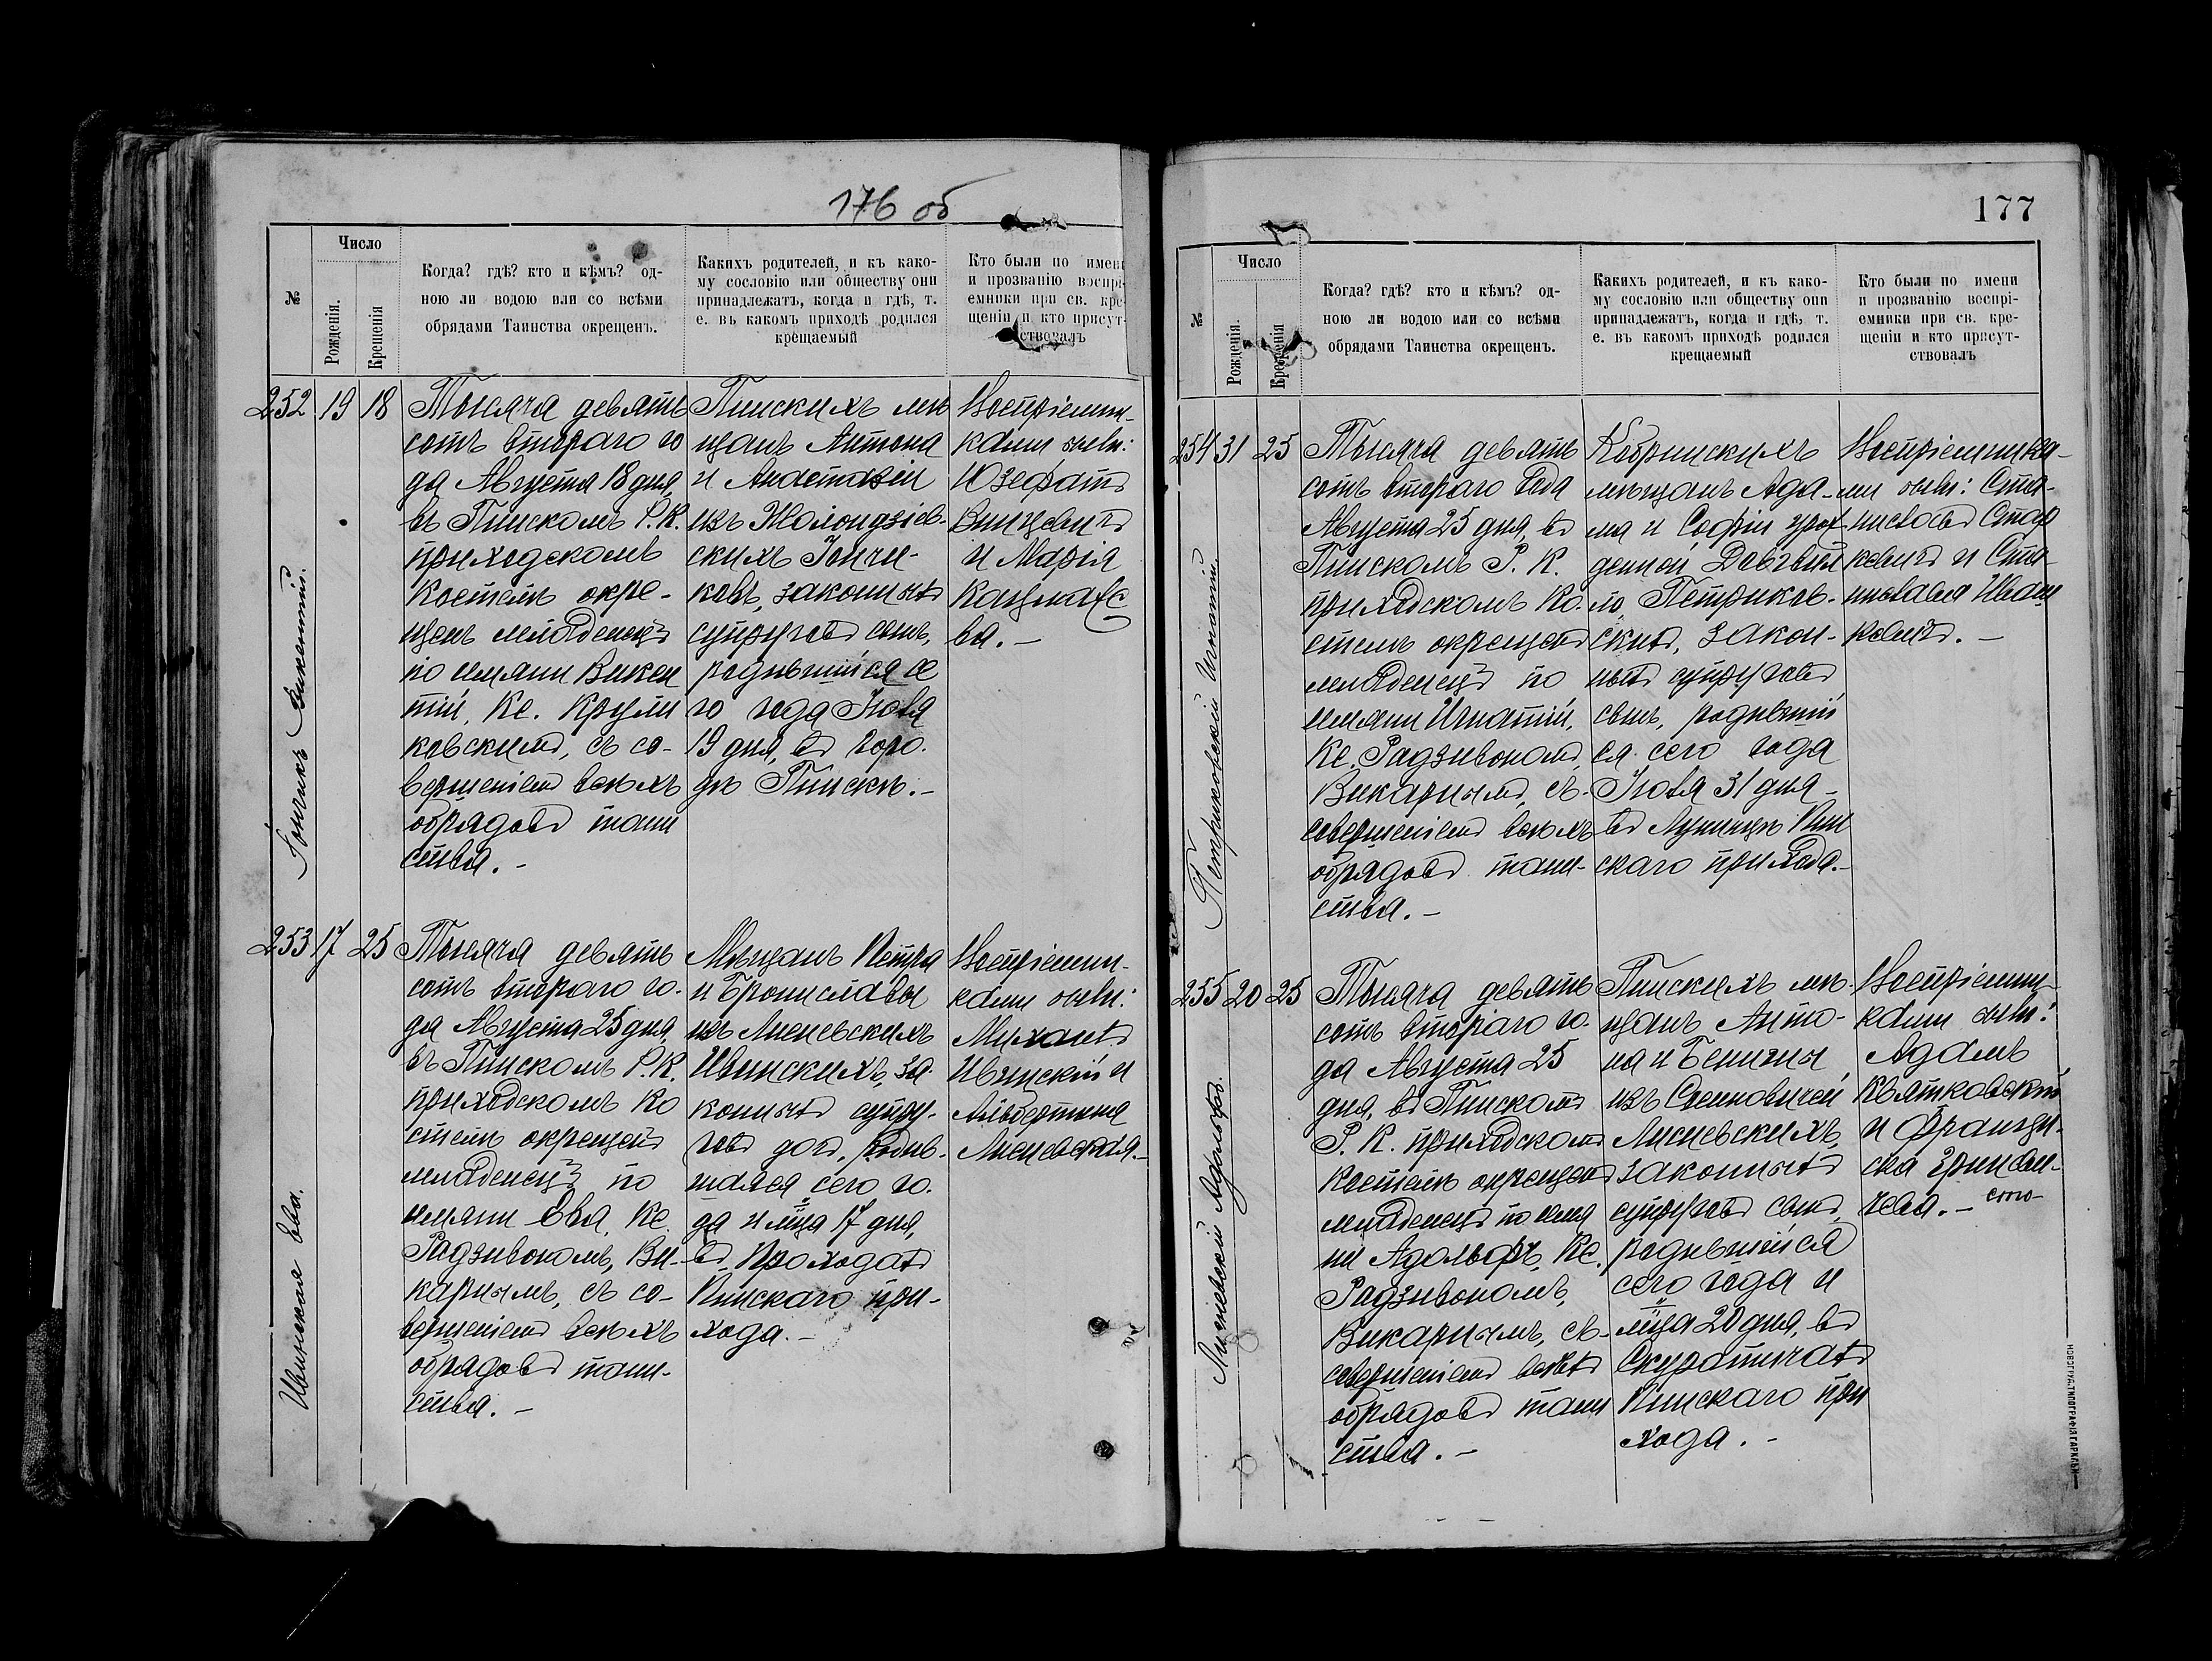 176 об
№
Число
Рожденія.
Крещенія
Когда? гдѣ? кто и кѣмъ? од-
ною ли водою или со всѣми
обрядами Таинства окрещенъ.
Какихъ родителей, и къ како-
му сословію или обществу они
принадлежатъ, когда и гдѣ, т.
е. въ какомъ приходѣ родился
крещаемый
Кто были по имени
и прозванію воспрі-
емники при св. кре-
щеніи и кто присут-
ствовалъ
252
19
18
Викентій.
Тысяча девять
сотъ втораго го
да Августа 18 дня,
въ Пинскомъ Р. К.
приходскомъ
Костелѣ окре-
щенъ младенецъ
по имени Викен
тій, Кс. Крули
ковскимъ, съ со-
вершеніемъ всѣхъ
обрядовъ таин
ства. -
Пинскихъ мѣ
щанъ Антона
и Анастазіи
изъ Жолондзіев-
скихъ Гончи-
ковъ, законныхъ
супруговъ сынъ,
родившійся се
го года Іюля
19 дня, въ горо-
дѣ Пинскѣ. -
Воспріемни-
ками были:
Юзефатъ
Винцевичъ
и Марія
ва. -
253
17
25
Ивинская Ева.
Тысяча девять
сотъ втораго го-
да Августа 25 дня,
въ Пинскомъ Р. К.
приходскомъ Ко
стелѣ окрещенъ
младенецъ по
имени Ева, Кс.
Радзивономъ, Ви-
карнымъ, съ со-
вершеніемъ всѣхъ
обрядовъ таин-
ства. -
Мѣщанъ Петра
и Брониславы
изъ Лисевскихъ
Ивинскихъ, за-
конныхъ супру-
говъ дочь, родив-
шаяся сего го-
да и м-ца 17 дня,
въ Проходахъ
Пинскаго при-
хода. -
Воспріемни-
ками были:
Михаилъ
Ивинскій и
Альбертина
Лисевская. -
177
№
Число
Рожденія.
Крещенія
Когда? гдѣ? кто и кѣмъ? од-
ною ли водою или со всѣми
обрядами Таинства окрещенъ.
Какихъ родителей, и къ како-
му сословію или обществу они
принадлежатъ, когда и гдѣ, т.
е. въ какомъ приходѣ родился
крещаемый
Кто были по имени
и прозванію воспрі-
емники при св. кре-
щеніи и кто присут-
ствовалъ
254
31
25
Петриковскій Игнатій.
Тысяча девять
сотъ втораго года
Августа 25 дня, въ
Пинскомъ Р. К.
приходскомъ Ко-
стелѣ окрещенъ
младенецъ по
имени Игнатій,
Кс. Радзивономъ,
Викарнымъ, съ
совершеніемъ всѣхъ
обрядовъ таин-
ства. -
Кобринскихъ
мѣщанъ Ада-
ма и Софіи урож
денной Довгял
ло Петриков-
скихъ, закон-
ныхъ супруговъ
сынъ, родившій
ся сего года
Іюля 31 дня -
въ Лунинцѣ Пин
скаго прихода. -
Воспріемника-
ми были: Ста-
ниславъ
и Ста-
нислава Иваш
кевичъ. -
255
20
25
Адольфъ.
Тысяча девять
сотъ втораго го-
да Августа 25
дня, въ Пинскомъ
Р. К. приходскомъ
Костелѣ окрещенъ
младенецъ по име
ни Адольфъ, Кс.
Радзивономъ,
Викарнымъ, съ
совершеніемъ всѣхъ
обрядовъ таин
ства. -
Пинскихъ мѣ-
щанъ Анто-
на и Бенигны
изъ
Лисевскихъ,
законныхъ
супруговъ сынъ,
родившійся
сего года и
м-ца 20 дня, въ
Пинскаго при
хода. -
Воспріемни-
ками были:
Адамъ
Квятковскій
и Францы-
ска